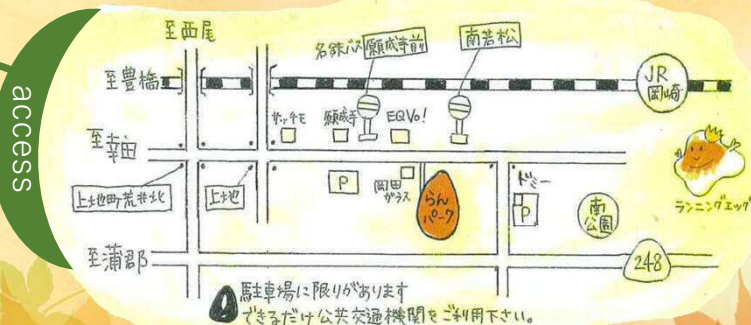 access
至西尾
至豊橋
名鉄バス 願成寺前
南若松
JR
岡崎
至幸田
サッチモ
願成寺
EQVo!
上土地町荒井北
上地
P
岡田
ガラス
らん
パーク
ドミー
P
南
公園
ランニングエッグ
至蒲郡
248
駐車場に限りがあります
できるだけ公共交通機関をご利用下さい。